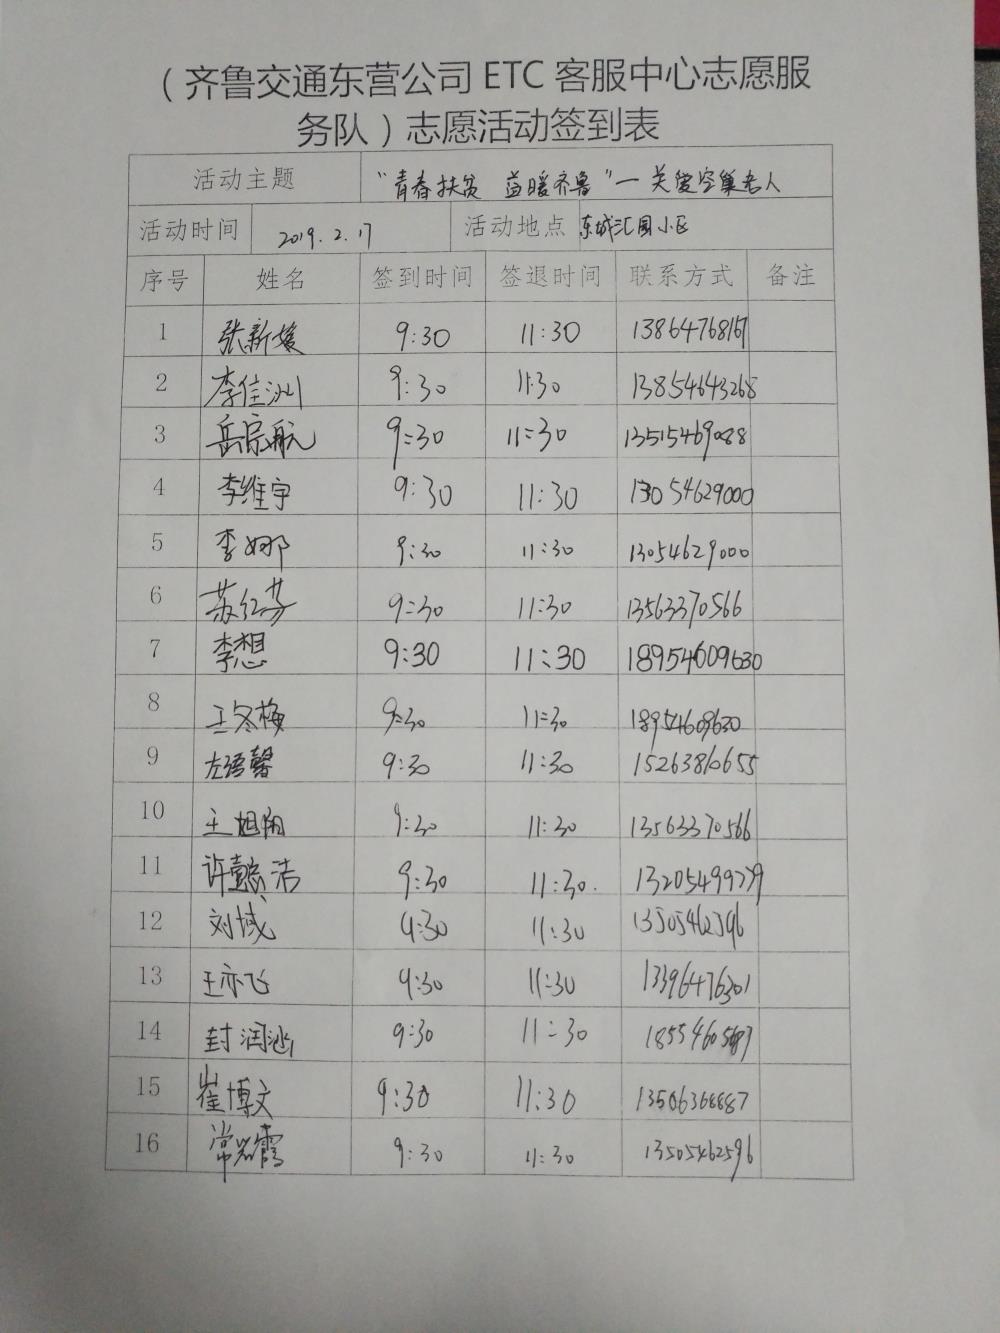 （齐鲁交通东营公司 ETC 客服中心志愿服
务队）志愿活动签到表
活动主题 “青春扶贫 益暖齐鲁”—关爱空巢老人
活动时间 2019.2.17 活动地点 东城汇园小区
序号 姓名 签到时间 签退时间 联系方式 备注
1 张新媛 9:30 11:30 13864768167
2 李佳洲 9:30 11:30 13854643268
3 岳宗航 9:30 11:30 13515469088
4 李维宇 9:30 11:30 13054629000
5 李娜 9:30 11:30 13054629000
6 苏红芬 9:30 11:30 13563370566
7 李想 9:30 11:30 18954609630
8 王冬梅 9:30 11:30 18954609630
9 左语馨 9:30 11:30 15263810655
10 王旭阳 9:30 11:30 13563370566
11 许懿浩 9:30 11:30. 13205499779
12 刘域 9:30 11:30 13505462596
13 王亦飞 9:30 11:30 13396476301
14 封润涵 9:30 11:30
15 崔博文 9:30 11:30 13506368887
16 常翠霞 9:30 11:30 13505462596